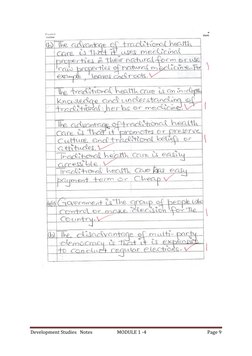 (b) The advantage of traditional health
care is that it uses medicinal
properties in their natural form or use
raw properties of natural medicine. For
example, leaves and roots.
The traditional health care is an indepth
Knowledge and understanding of
traditional herbs or medicine.
The advantage of traditional health
care is that it promotes or preserve
culture and traditional beliefs or
attitudes.
Traditional health care is easily
accessible
Traditional health care has easy
payment form or Cheap
Government is the group of people who
control or make decision for the
Country.
(b) The disadvantage of multi-party
democracy is that it is expensive
to conduct regular elections.
Development Studies Notes MODULE 1 -4 Page 9